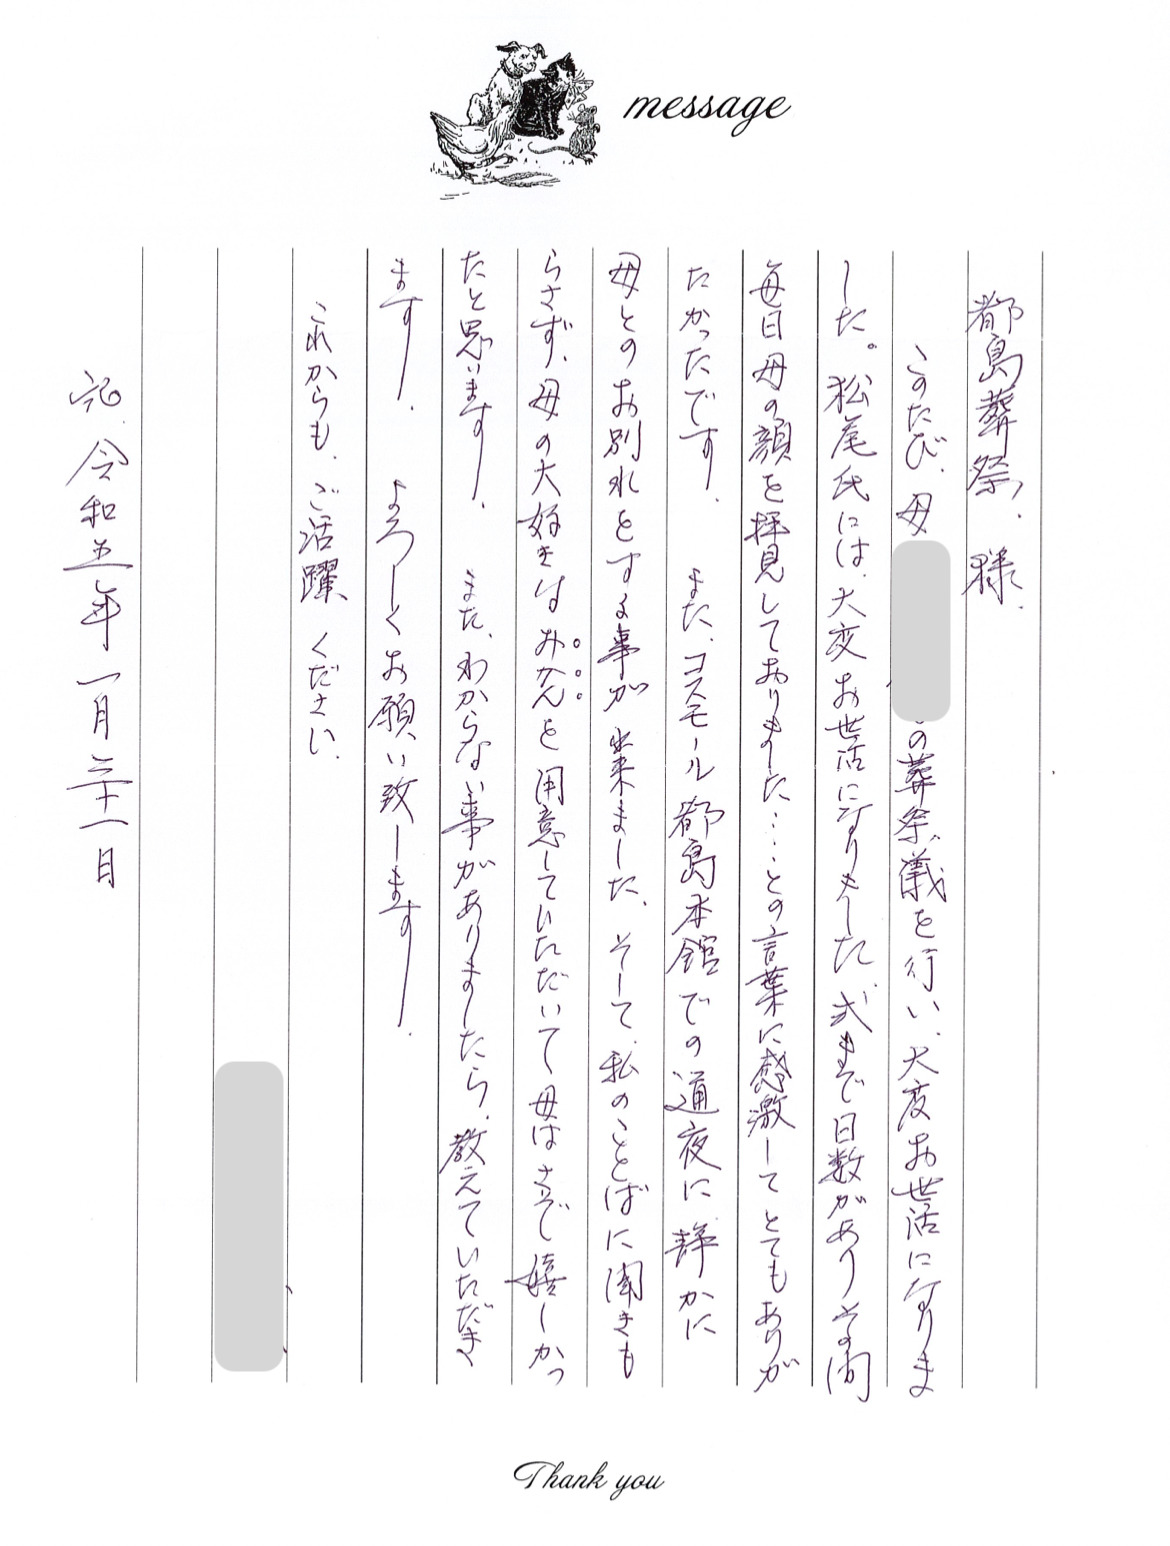 message
都島葬祭、様、
このたび、母
の葬祭儀を行い、大変お世活になりま
した。松尾氏には、大変お世活になりました 式まで日数があり その間
毎日母の顔を拝見しておりました…との言葉に感激して とてもありが
たかったです。 また、コスモール都島本館での通夜に静かに
母とのお別れをする事が出来ました、そして、私のことばに聞きも
らさず、母の大好きなおかんを用意していただいて母はさぞ嬉しかっ
たと思います。 また、わからない事がありましたら、教えていただき
ます。 よろしくお願い致します。
これからも、ご活躍ください、
記、令和五年一月三十一日
Thank you